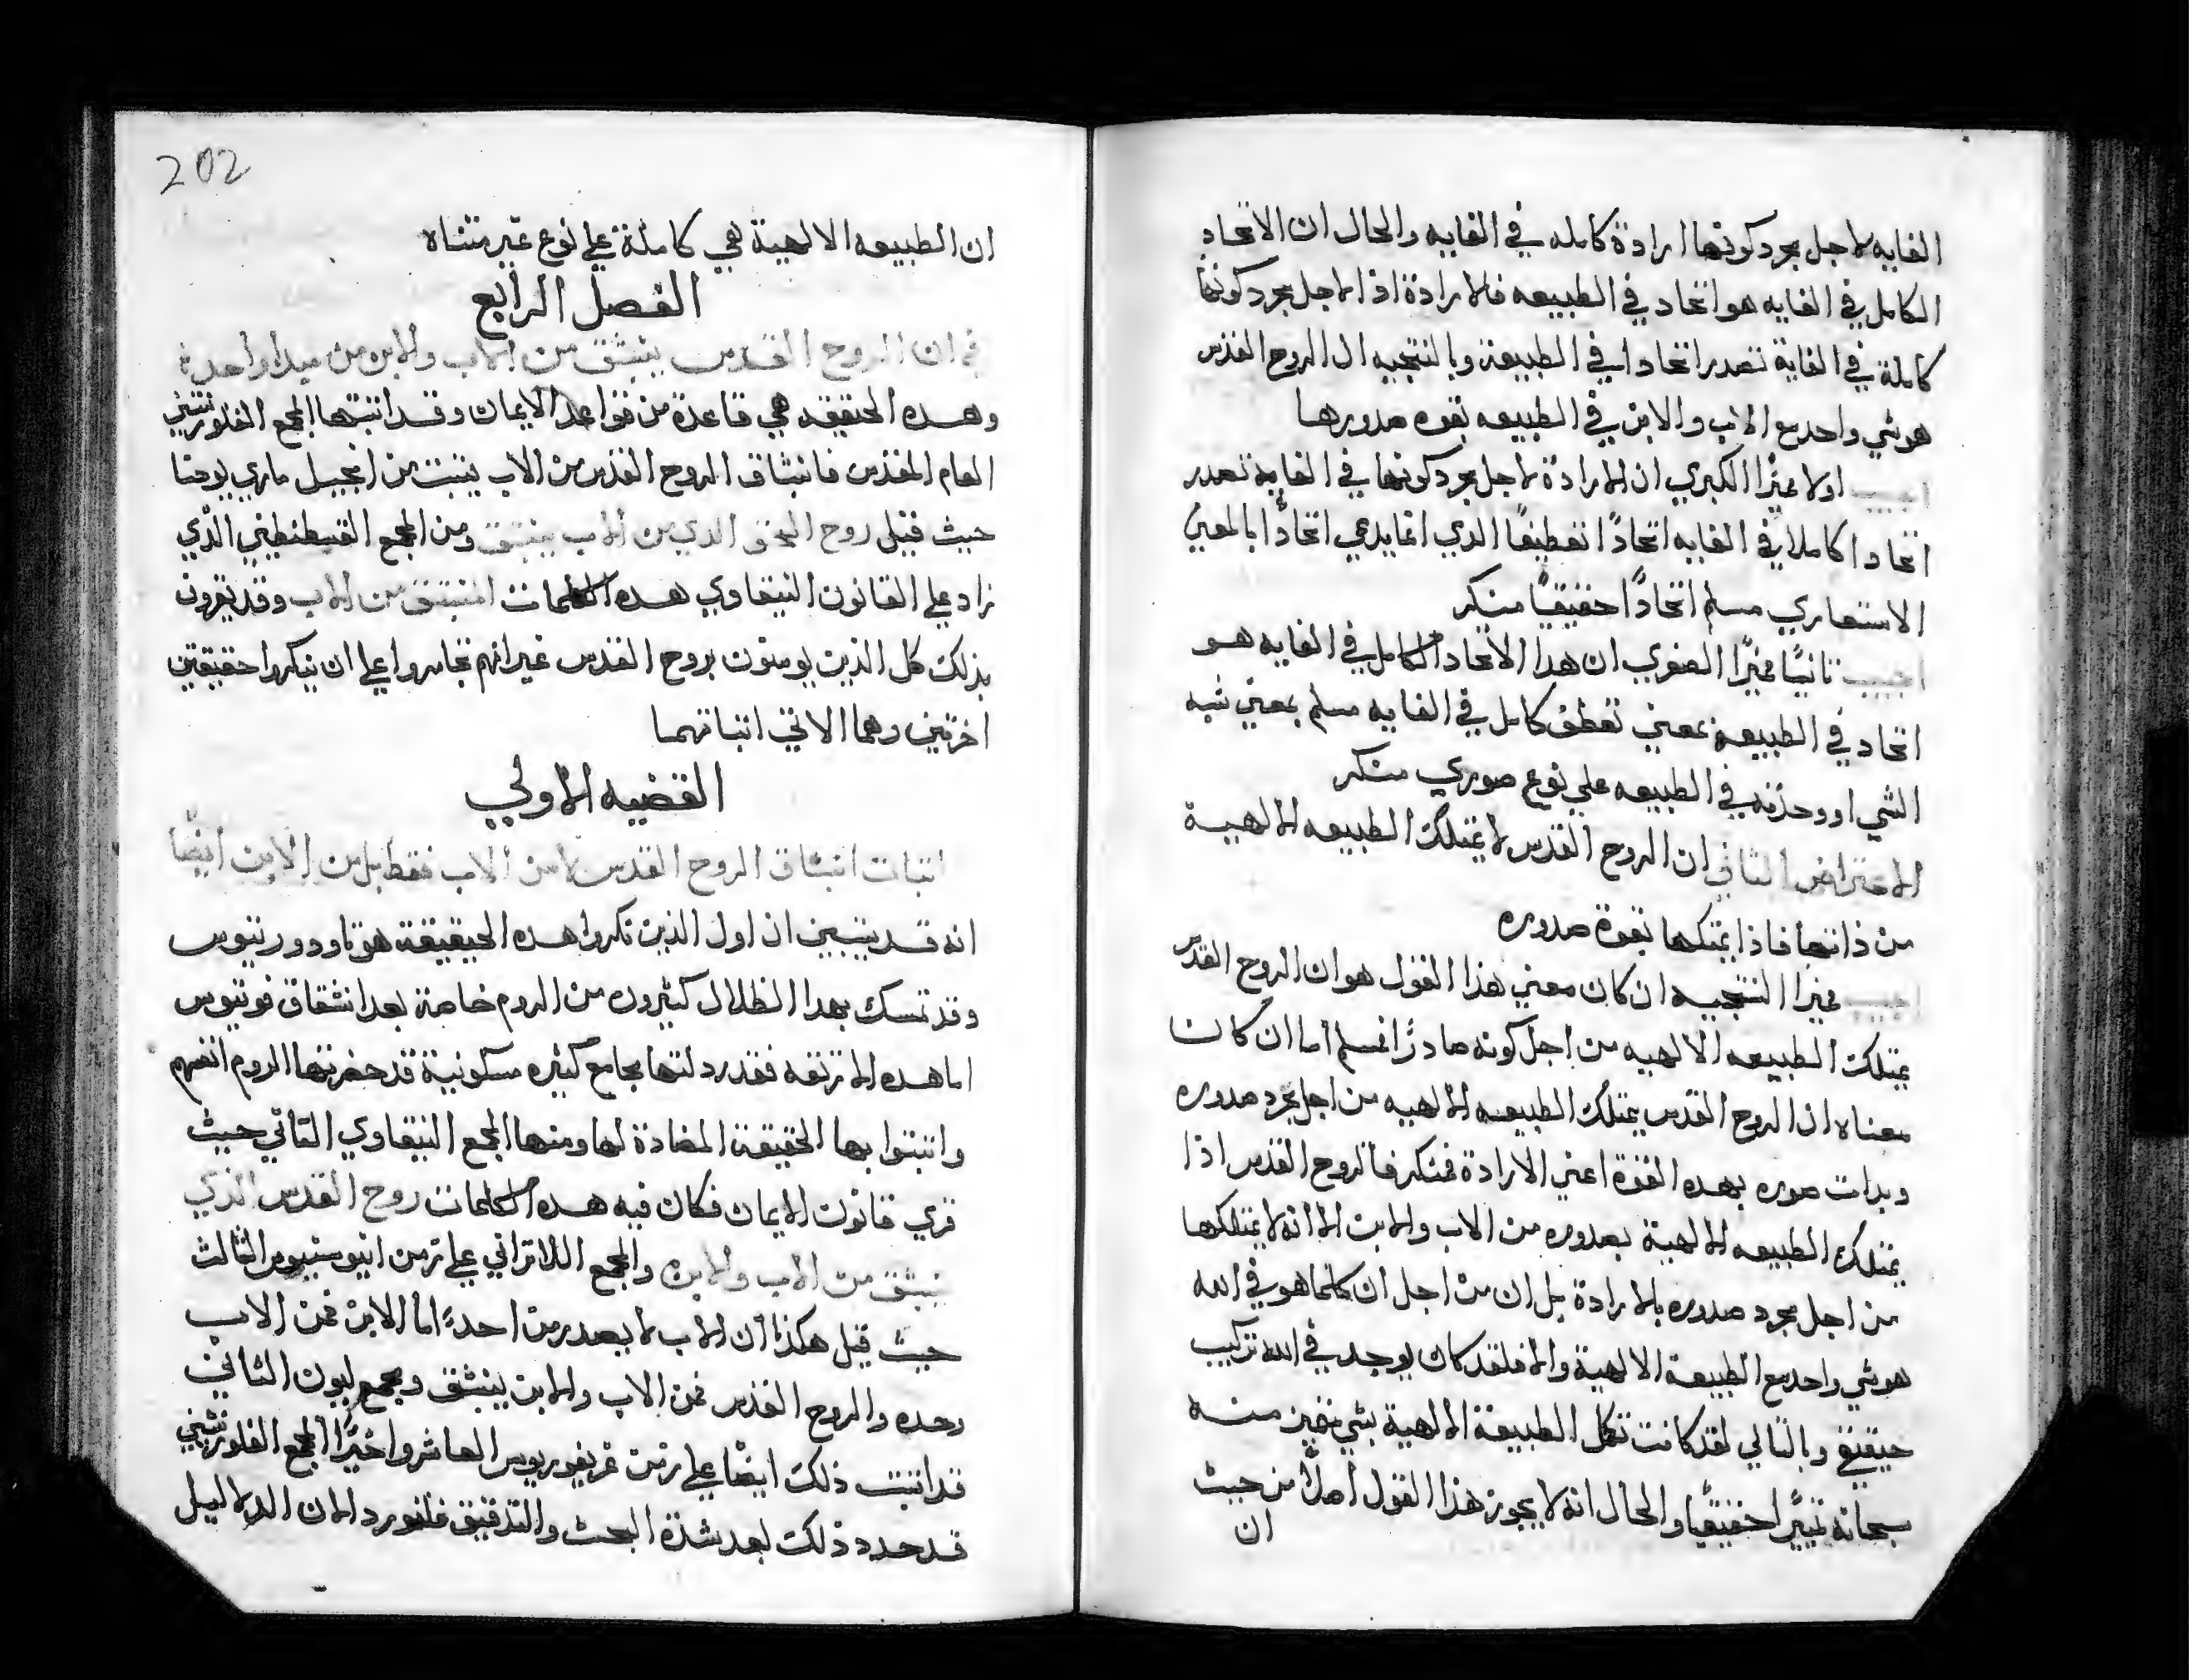 الغايه لاجل مجرد كونها ارادة كامله في الغايه والحال ان الاتحاد
الكامل في الغايه هو اتحاد في الطبيعه فالارادة اذا لاجل مجرد كونها
كاملة في الغاية تصدر اتحادا في الطبيعة وبالنتيجيه ال الروح القدس
هو شي واحد مع الاب والابن في الطبيعه بقوه صدورها
اجيب اولا مميزا الكبري ان الارادة لاجل مجرد كونها في الغاية تصدر
اتحادا كاملا في الغايه اتحادًا تعطيفًا الذي انما يدعي اتحادًا بالمعني
الاستعاري مسلم اتحادًا حقيقيًا منكر
اجيب ثانيًا مميزًا الصغري ان هدا الاتحاد الكامل في الغايه هو
اتحاد في الطبيعة بمعني تعطف كامل في الغايه مسلم بمعني شبه
الشي او وحدته في الطبيعه علي نوع صوري منكر
الاعتراض الثاني ان الروح القدس لا يمتلك الطبيعه الالهية
من ذاتها فاذا يمتلكها بقوة صدوره
اجيب مميزا النتيجيه ان كان معني هذا القول هو ان الروح القدس
يمتلك الطبيعه الالهيه من اجل كونه صادرًا فمسلم اما ان كان
معناه ان الروح القدس يمتلك الطبيعه الالهيه من اجل مجرد صدوره
وبدات صوره بهده القوة اعني الارادة فمنكر فالروح القدس اذا
يمتلك الطبيعه الالهية بصدوره من الاب والابن الا انه لا يمتلكها
من اجل مجرد صدوره بالارادة بل ان من اجل ان كلما هو في الله
هو شي واحد مع الطبيعة الالهية والا فلقد كان يوجد في الله تركيب
حيقيقي وبالتالي لقد كانت تكل الطبيعة الالهية بشي متميز منه
سبحانه تميزًا حقيقيًا والحال انه لا يجوز هذا القول اصلًا من حيث
ان
202
ان الطبيعه الالهية هي كاملة علي نوع غير متناه
الفصل الرابع
في ان الروح القدس ينبثق من الاب والابن من مبدا واحد
وهده الحقيقه هي قاعدة من قواعد الايمان وقد اثبتها المجمع الفلورنتيني
العام المقدس فانبثاق الروح القدس من الاب يثبت من انجيل ماري يوحنا
حيث قيل روح الحق الدي من الاب ينبثق ومن المجمع القسطنطيني الذي
زاد علي القانون النيقاوي هده الكلمات المنبثق من الاب وقد يقرون
بذلك كل الذين يومنون بروح القدس غير انهم تجاسروا علي ان ينكروا حقيقتين
اخرتين وهما الاتي اثباتهما
القضيه الاولي
اثبات انبثاق الروح القدس لا من الاب فقط بل من الابن ايضًا
انه قد يتبين ان اول الذين نكروا هده الحقيقيقة هو تاودوريتوس
وقد تمسك بهدا الظلال كثيرون من الروم خاصة بعد انشقاق فوتيوس
اما هده الارتقه فقد ردلتها مجامع كثيره مسكونية قد حضرتها الروم انفسهم
واثبتوا بها الحقيقة المضادة لها ومنها المجمع النيقاوي الثاني حيث
قري قانون الايمان فكان فيه هده الكلمات روح القدس الذي
ينبثق من الاب والابن والمجمع اللاتراني علي زمن اينوسنسيوس الثالث
حيث قيل هكذا ان الاب لا يصدر من احدٍ اما الابن فمن الاب
وحده والروح القدس فمن الاب والابن ينبثق ومجمع ليون الثاني
قد اثبت ذلك ايضًا علي زمن غريغوريوس العاشر واخيرًا المجمع الفلورنتيني
قد حدد ذلك بعد شدة البحث والتدقيق فلنورد الان الدلاليل